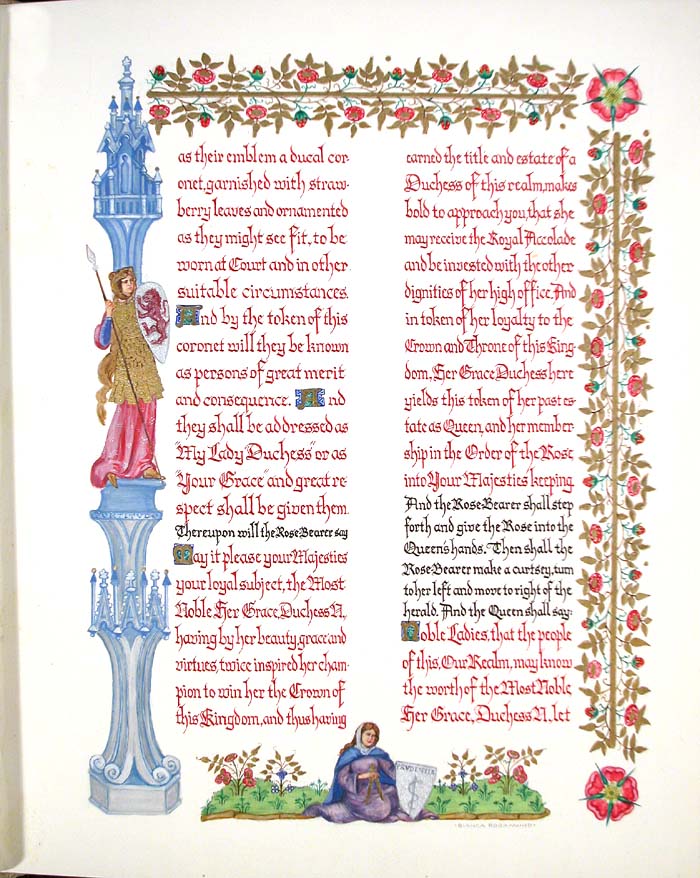 as their emblem a ducal cor-
onet, garnished with straw-
berry leaves and ornamented
as they might see fit, to be
worn at Court and in other
suitable circumstances.
And by the token of this
coronet will they be known
as persons of great merit
and consequence. And
they shall be addressed as
"My Lady Duchess" or as
"Your Grace" and great re-
spect shall be given them.
Thereupon will the Rose Bearer say
May it please your Majesties
your loyal subject, the Most
Noble Her Grace, Duchess N,
having by her beauty, grace and
virtues, twice inspired her cham-
pion to win her the Crown of
this Kingdom, and thus having
earned the title and estate of a
Duchess of this realm, makes
bold to approach you, that she
may receive the Royal Accolade
and be invested with the other
dignities of her high office. And
in token of her loyalty to the
Crown and Throne of this King-
dom, Her Grace Duchess here
yields this token of her past es-
tate as Queen, and her member-
ship in the Order of the Rose
into Your Majesties keeping.
And the Rose Bearer shall step
forth and give the Rose into the
Queen's hands. Then shall the
Rose Bearer make a curtsey, turn
to her left and move to right of the
herald. And the Queen shall say:
Noble Ladies, that the people
of this, Our Realm, may know
the worth of the Most Noble
Her Grace, Duchess N. let
PRUDENTIA
BIANCA ROSAMUND